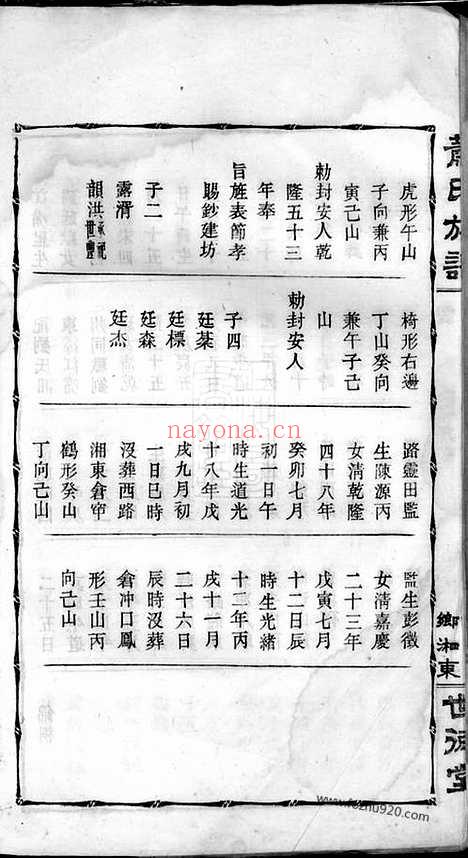 蕭氏族譜
鄉湘東
世德堂
虎形午山
子向兼丙
寅己山
勅封安人乾
隆五十三
年奉
旨旌表節孝
賜鈔建坊
子二
露湑
韻洪承祀世豐
椅形右邊
丁山癸向
兼午子己
山
勅封安人
子四
廷棻
廷標
廷森
廷杰
路靈田監
生陳源丙
女淸乾隆
四十八年
癸卯七月
初一日午
時生道光
十八年戊
戌九月初
一日巳時
沒葬西路
湘東倉窂
鶴形癸山
丁向己山
監生彭徵
女淸嘉慶
二十三年
戊寅七月
十二日辰
時生光緒
十二年丙
戌十一月
二十六日
辰時沒葬
倉冲口鳳
形壬山丙
向己山
nayona.cn
www.fozhu920.com